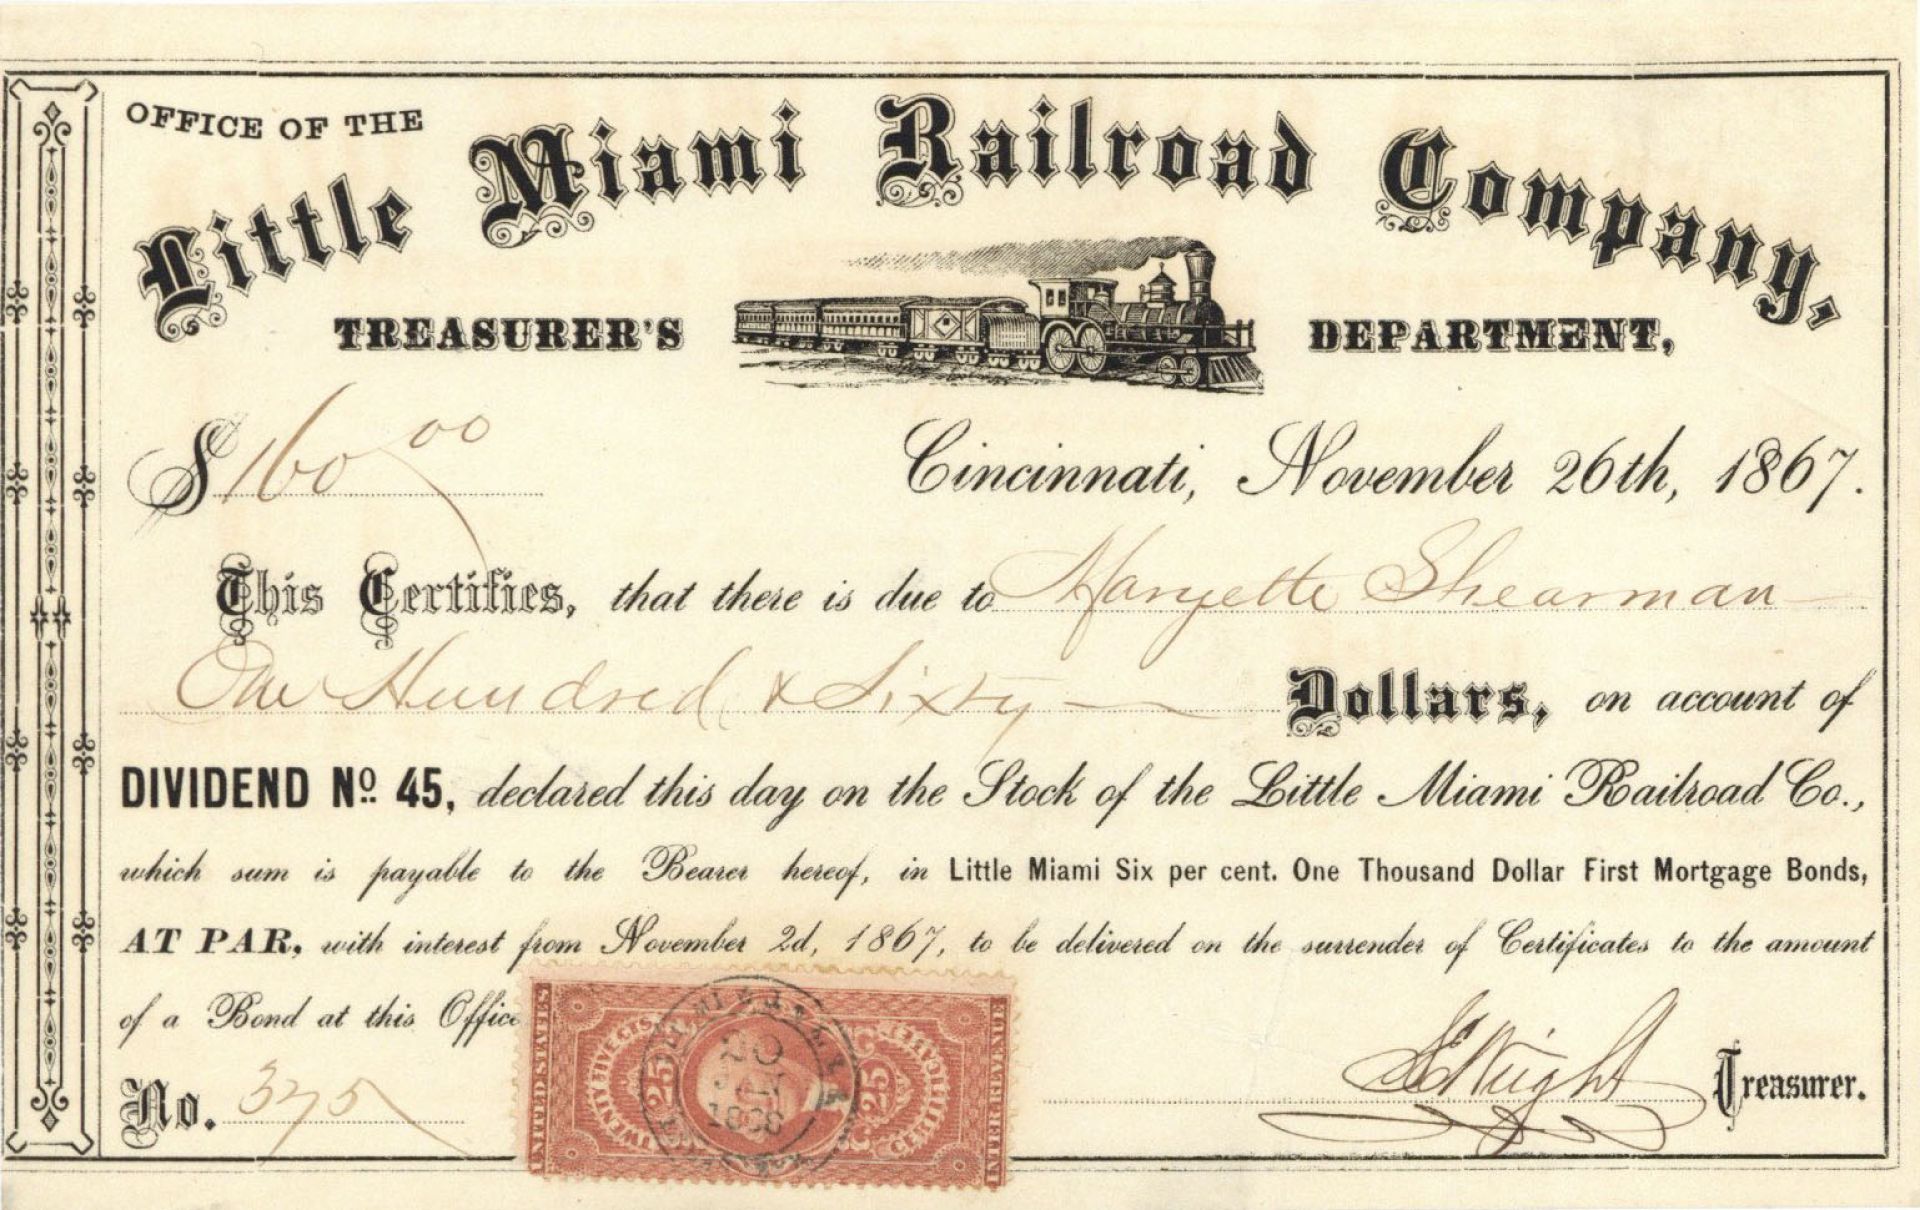 OFFICE OF THE
Little Miami Railroad Company,
TREASURER'S DEPARTMENT,
$ 160 00
Cincinnati, November 26th, 1867.
This Certifies, that there is due to Maryette Shearman
One Hundred & Sixty Dollars, on account of
DIVIDEND No. 45, declared this day on the Stock of the Little Miami Railroad Co.,
which sum is payable to the Bearer hereof, in Little Miami Six per cent. One Thousand Dollar First Mortgage Bonds,
AT PAR, with interest from November 2d, 1867, to be delivered on the surrender of Certificates to the amount
of a Bond at this Office
No. 375
Wright Treasurer.
UNITED STATES
INTER. REVENUE
TWENTY FIVE
25 25
CERTIFICATE
20
JAN
1868